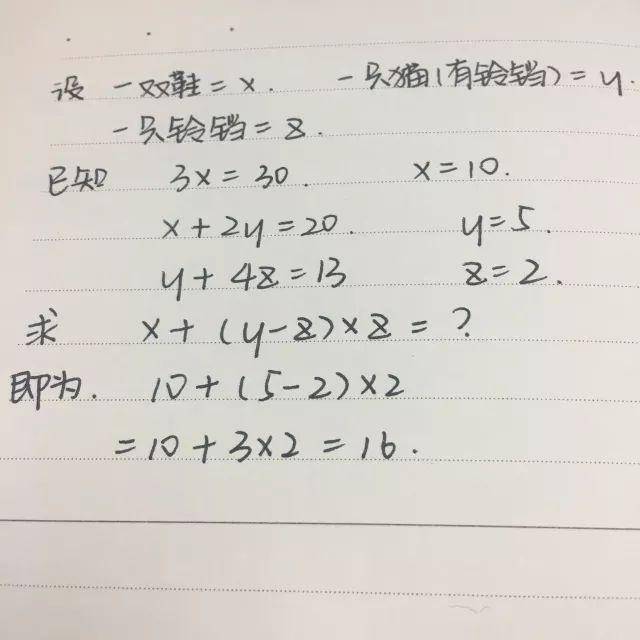 设 一双鞋=x. 一只猫(有铃铛)=y.
一只铃铛=z.
已知 3x=30. x=10.
x+2y=20. y=5.
y+4z=13 z=2.
求 x+(y-z)×z=?
即为. 10+(5-2)×2
=10+3×2=16.